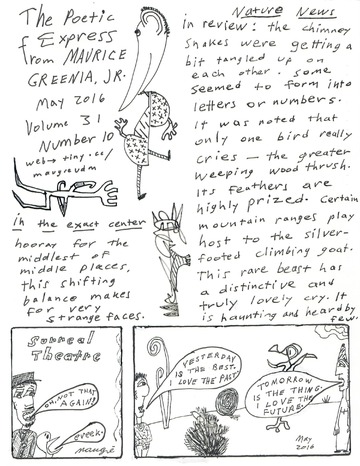 The Poetic
Express
from MAURICE
GREENIA, JR.
May 2016
Volume 31
Number 10
web→ tiny.cc/
maugreudm
in the exact center
hooray for the
middlest of
middle places,
this shifting
balance makes
for very
strange faces.
Nature News
in review: the chimney
snakes were getting a
bit tangled up on
each other. some
seemed to form into
letters or numbers.
It was noted that
only one bird really
cries — the greater
weeping wood thrush.
Its feathers are
highly prized. Certain
mountain ranges play
host to the silver-
footed climbing goat.
This rare beast has
a distinctive and
truly lovely cry. It
is haunting and heard by
few.
Surreal
Theatre
OH, NOT THAT
AGAIN!
Greek.
YESTERDAY
IS THE BEST.
I LOVE THE PAST.
TOMORROW
IS THE THING.
I LOVE THE
FUTURE.
May
2016